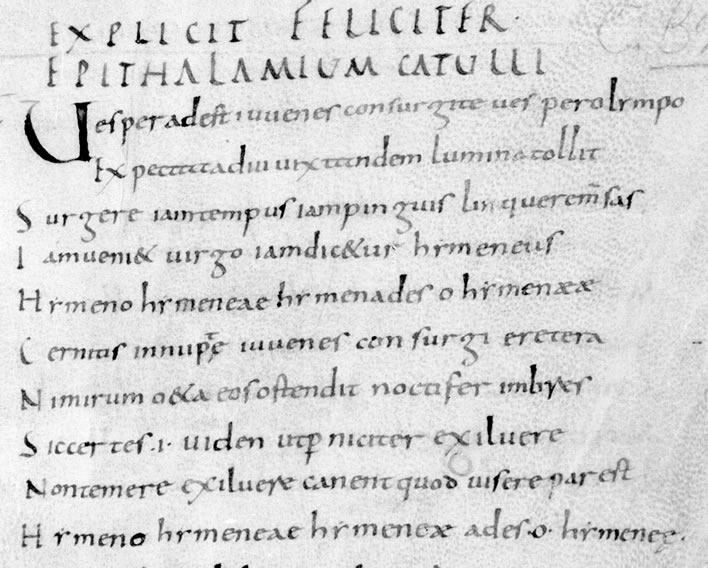 EXPLICIT FELICITER·
EPITHALAMIUM CATULLI
Uesper adest iuuenes consurgite ues per olympo
Expectata diu uix tandem lumina tollit
Surgere iam tempus iam pinguis linquere m̃sas
Iam ueni& uirgo iam dic&ur hymeneus
Hymeno hymeneae hymenades o hymenææ
Cernitis innupte iuuenes consurgi eretera
Nimirum o&a eos ostendit noctifer imbres
Sic certes .i. uiden utꝑniciter exiluere
Non temere exiluere canent quod uisere par est
Hymeno hymeneae hymenæ ades .o. hymeneę.